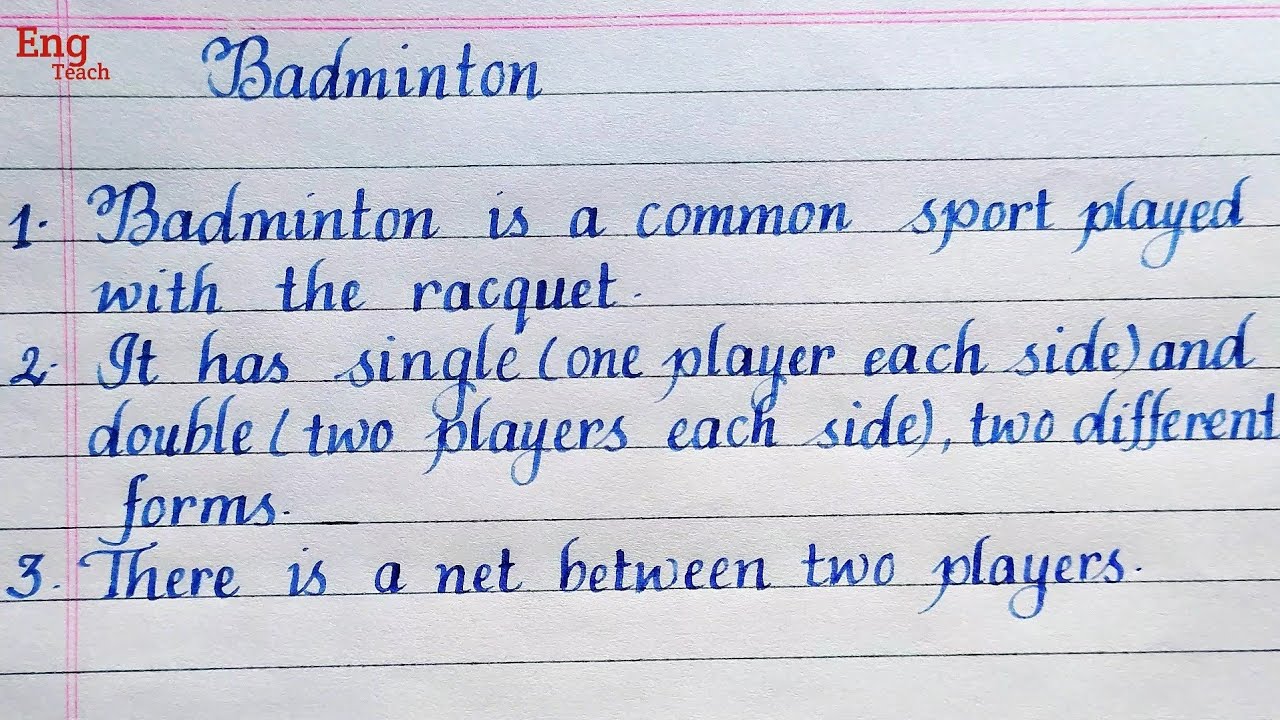 Eng
Teach
Badminton
1. Badminton is a common sport played
with the racquet.
2. It has single (one player each side) and
double (two players each side), two different
forms.
3. There is a net between two players.